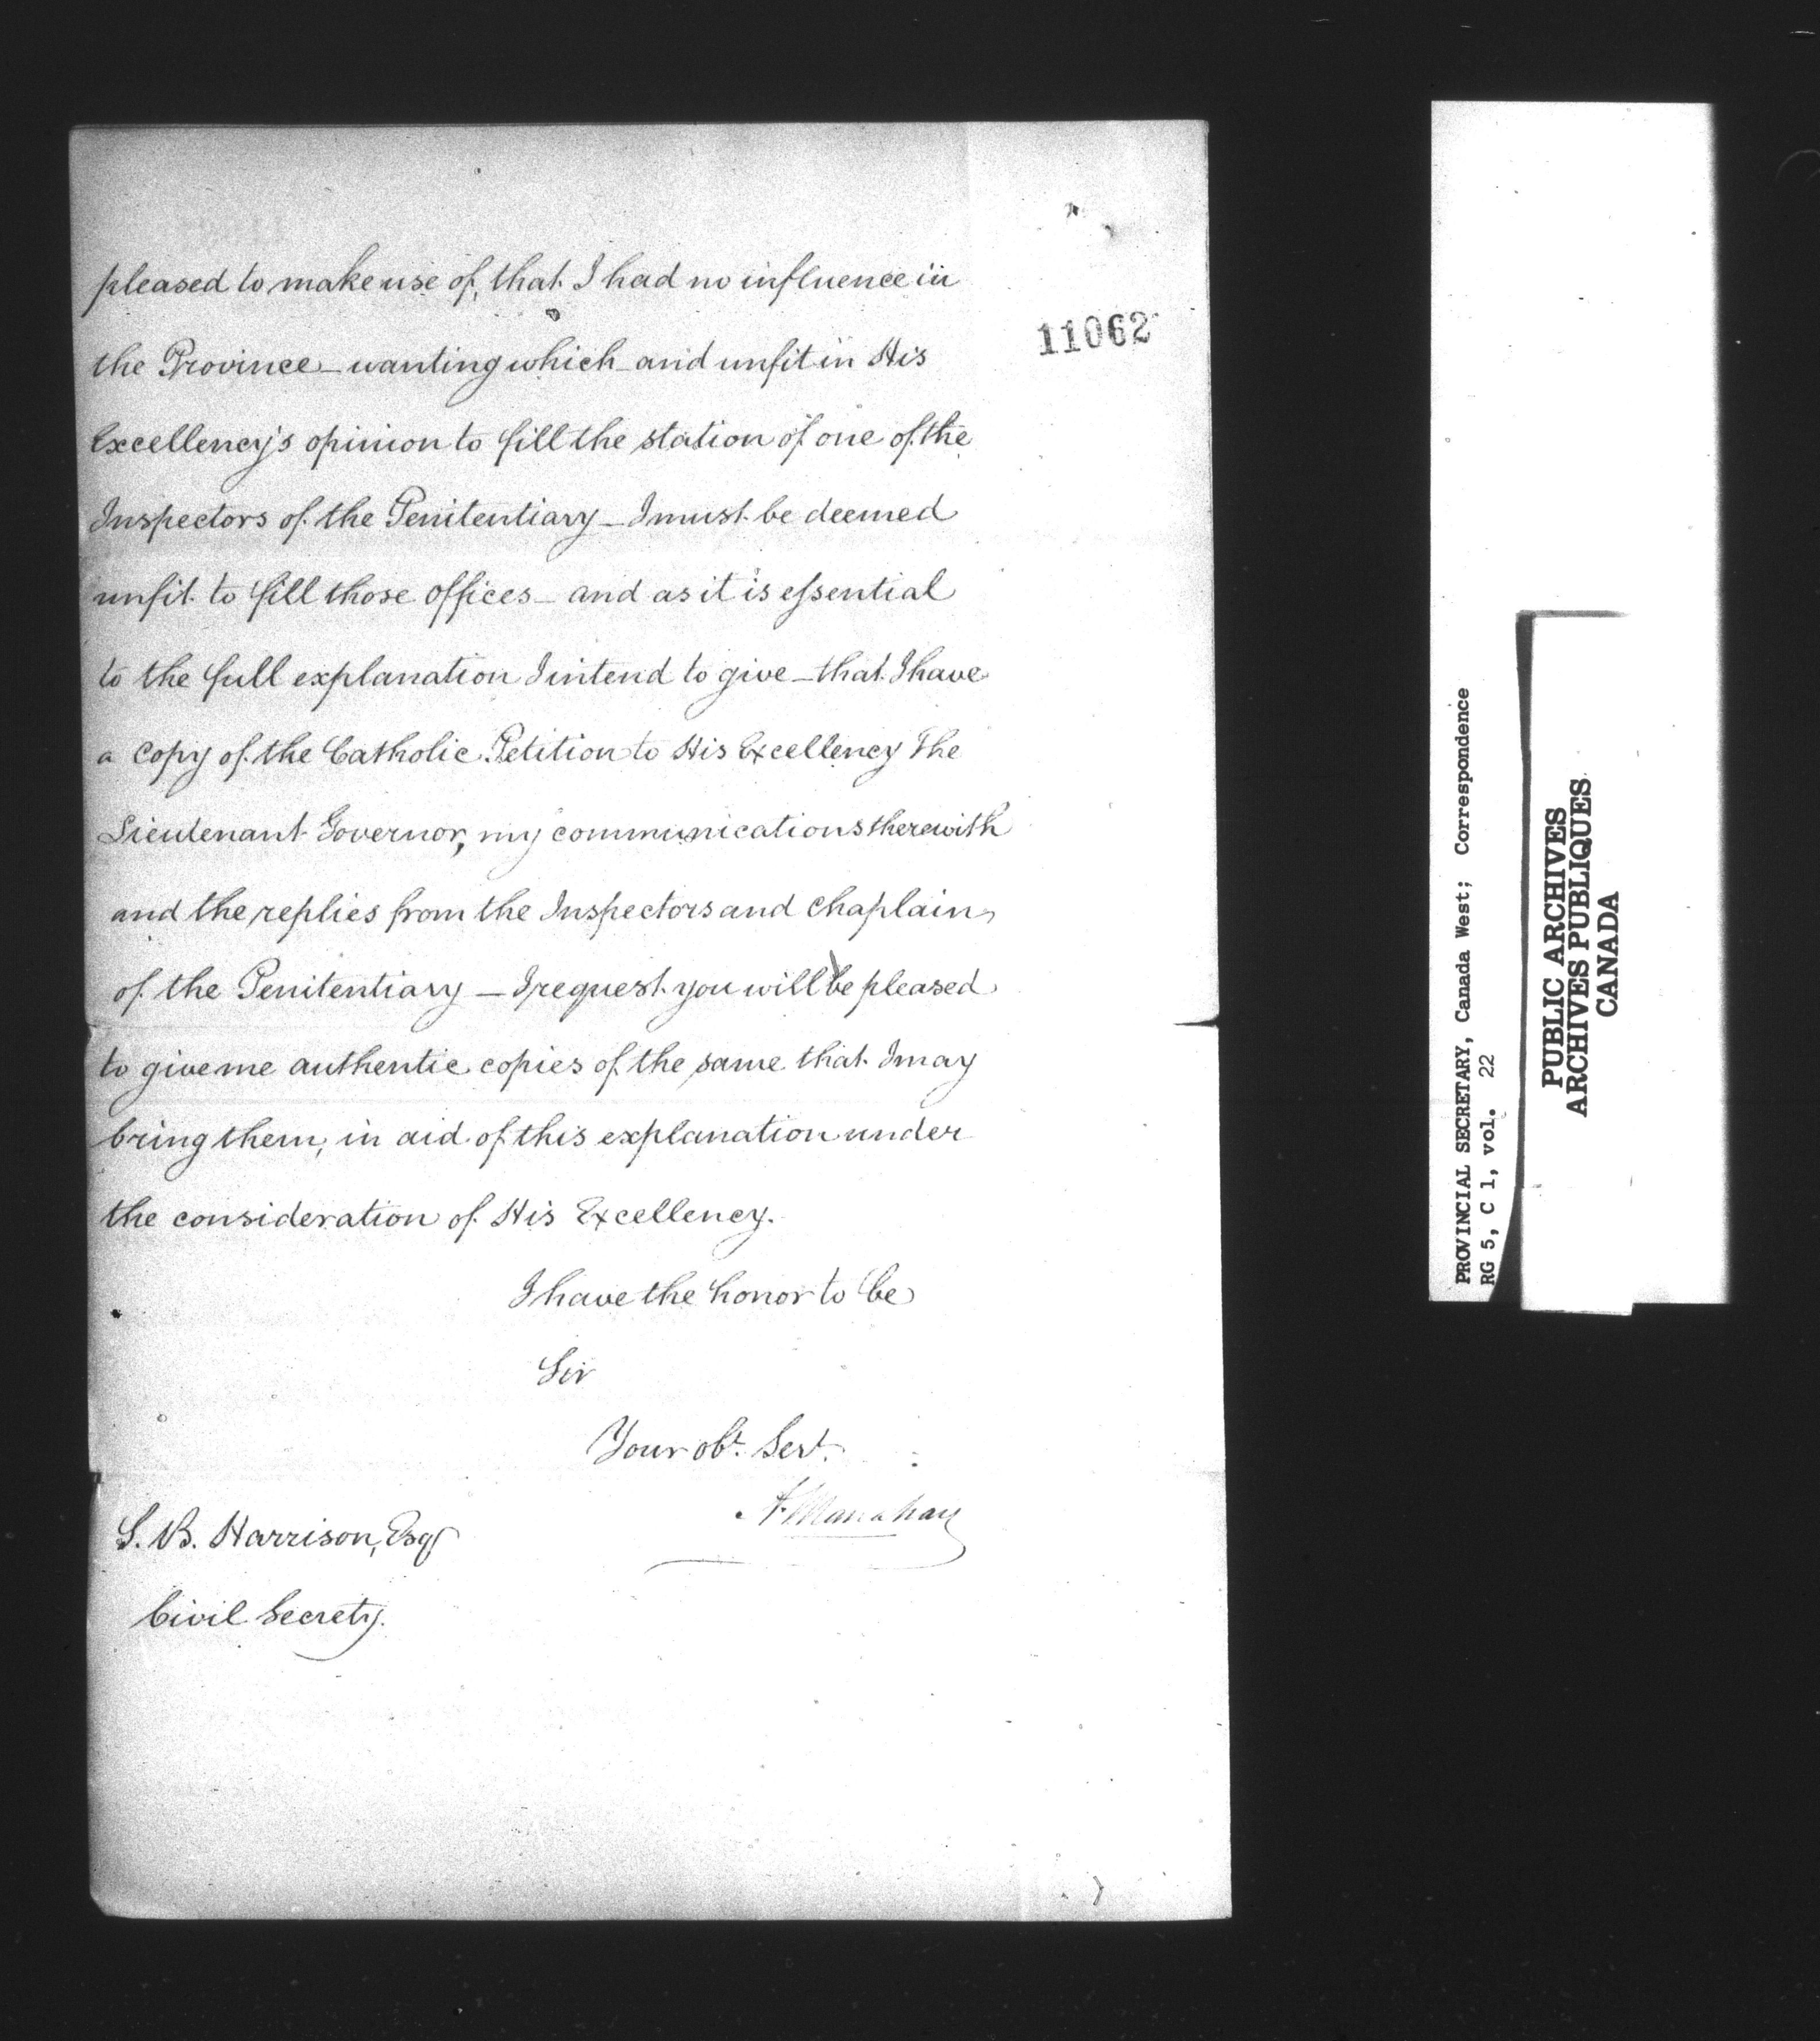 pleased to make use of, that I had no influence in
11062
the Province – wanting which – and unfit in His
Excellency's opinion to fill the station of one of the
Inspectors of the Penitentiary – I must be deemed
unfit to fill those offices – and as it is essential
to the full explanation I intend to give – that I have
a copy of the Catholic Petition to His Excellency The
Lieutenant Governor, my communications therewith
and the replies from the Inspectors and Chaplain
of the Penitentiary – I request you will be pleased
to give me authentic copies of the same that I may
bring them, in aid of this explanation under
the consideration of His Excellency.
I have the honor to be
Sir
Your obt. Sert.
A Manahan
S. B. Harrison, Esqr
Civil Secrety.
PROVINCIAL SECRETARY, Canada West; Correspondence
RG 5, C 1, vol. 22
PUBLIC ARCHIVES
ARCHIVES PUBLIQUES
CANADA